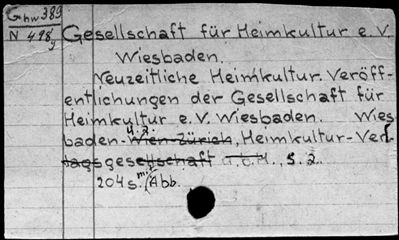 Ghw 389
N 498
Gesellschaft für Heimkultur e.V.
Wiesbaden.
Neuzeitliche Heimkultur. Veröff-
entlichungen der Gesellschaft für
Heimkultur e.V. Wiesbaden. Wies
baden-Wien-Zürich, Heimkultur-Verl.
tagsgesellschaft
204 S. m. Abb.